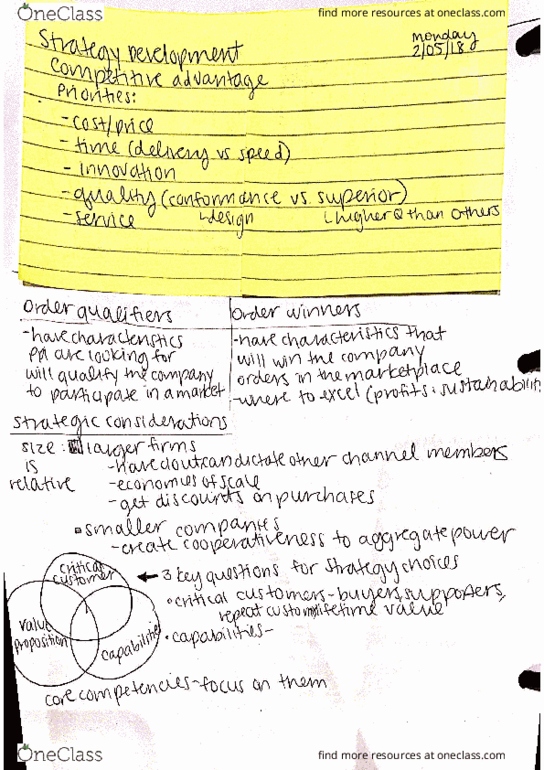 OneClass
find more resources at oneclass.com
Strategy Development
monday
2/05/18
Competitive advantage
Priorities:
-cost/price
- time (delivery vs speed)
- innovation
-quality (conformance vs. superior)
-service ↳design ↳higher Q than others
Order qualifiers
-have characteristics
ppl are looking for
will qualify the company
to participate in a market
Order winners
-have characteristics that
will win the company
orders in the marketplace
-where to excel (profits & sustainability)
strategic considerations
size: larger firms
is
relative
-have clout, can dictate other channel members
-economies of scale
-get discounts on purchases
smaller companies
-create cooperativeness to aggregate power
critical
customer
value
proposition
capabilities
← 3 key questions for strategy choices
•critical customers-buyers, supporters,
repeat custom lifetime value
•capabilities-
core competencies-focus on them
OneClass
find more resources at oneclass.com